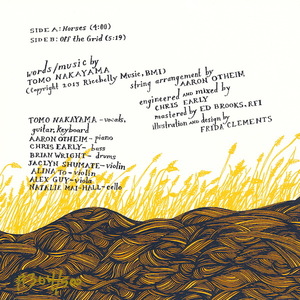 SIDE A: Horses (4:00)
SIDE B: Off the Grid (5:19)
words/music by
TOMO NAKAYAMA
(Copyright 2013 Ricebelly Music, BMI)
string arrangement by
AARON OTHEIM
engineered and mixed by
CHRIS EARLY
mastered by ED BROOKS, RFI
illustration and design by
FRIDA CLEMENTS
TOMO NAKAYAMA - vocals,
guitar, keyboard
AARON OTHEIM - piano
CHRIS EARLY - bass
BRIAN WRIGHT - drums
JACLYN SHUMATE - violin
ALINA TO - violin
ALEX GUY - viola
NATALIE MAI-HALL - cello